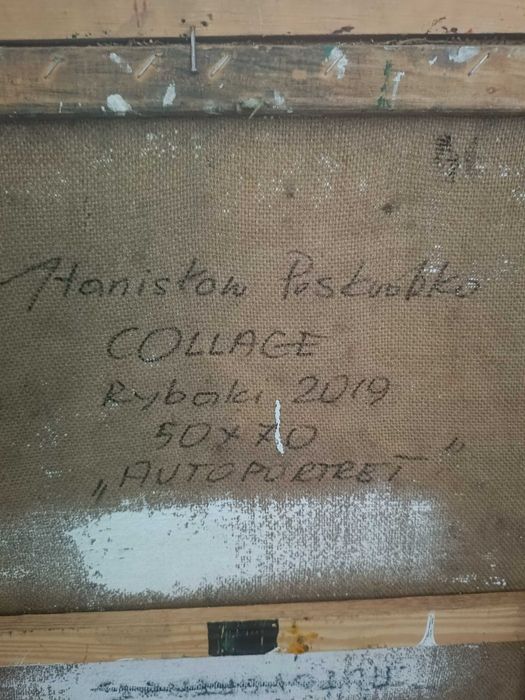 Stanisław
COLLAGE
Rybaki 2019
50 x 70
„AUTOPORTRET"